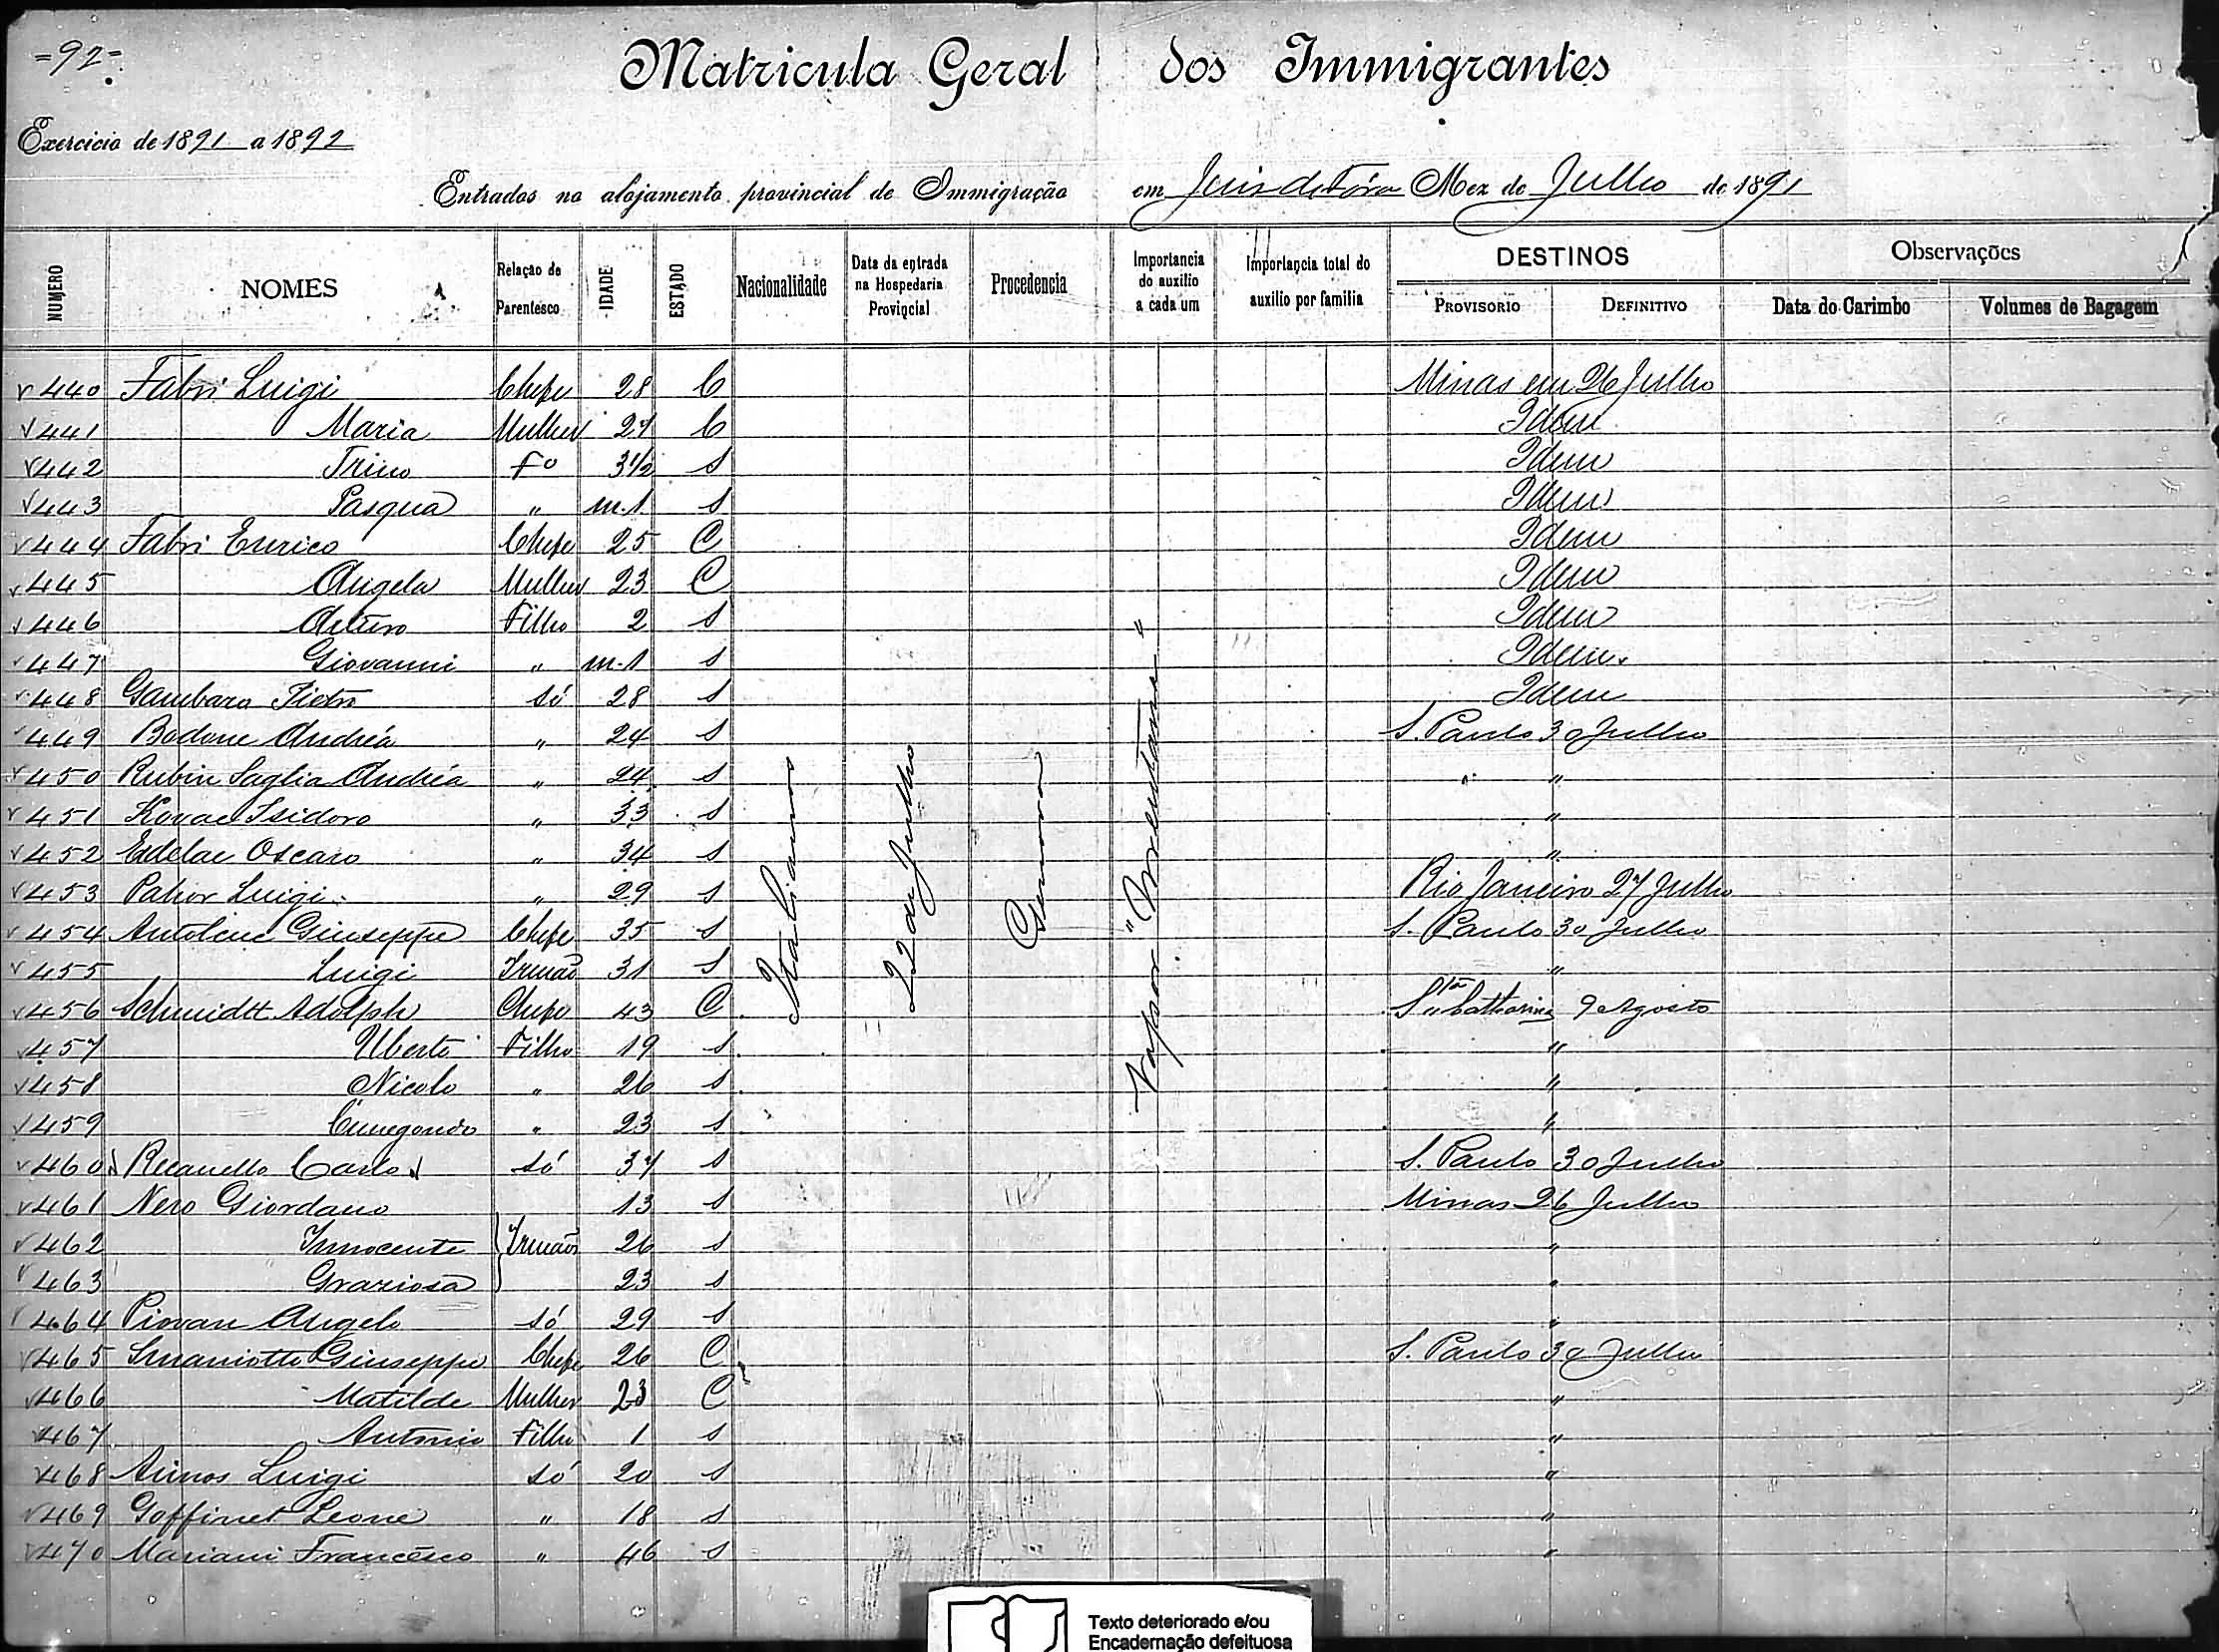 =92=
Matricula Geral dos Immigrantes
Exercicio de 1891 a 1892
Entrados no alojamento provincial de Immigração em Juiz de Fóra Mez de Julho de 1891
NUMERO NOMES Relação de Parentesco IDADE ESTADO Nacionalidade Data da entrada na Hospedaria Provincial Procedencia Importancia do auxilio a cada um Importancia total do auxilio por familia DESTINOS PROVISORIO DEFINITIVO Observações Data do Carimbo Volumes de Bagagem
440 Fabri Luigi Chefe 28 C Minas em 26 Julho
441 Maria Mulher 27 C Idem
442 Trino Fo 3 1/2 S Idem
443 Pasqua " m.1 S Idem
444 Fabri Enrico Chefe 25 C Idem
445 Angela Mulher 23 C Idem
446 Arturo Filho 2 S Idem
447 Giovanni " m.1 S Idem
448 Gambaro Pietro só 28 S Idem
449 Bodone Andréa " 24 S S. Paulo 30 Julho
450 Rubin Saglia Andréa " 24 S " "
451 Kovac Isidoro " 33 S "
452 Edelac Oscaro " 34 S "
453 Pahor Luigi " 29 S Rio Janeiro 27 Julho
454 Antolene Giuseppe Chefe 35 S S. Paulo 30 Julho
455 Luigi Irmão 31 S "
456 Schmidtt Adolph Chefe 43 C Sta Catharina 9 Agosto
457 Uberto Filho 19 S "
458 Nicolo " 26 S "
459 Cunegondo " 23 S "
460 Recanello Carlo só 37 S S. Paulo 30 Julho
461 Nero Giordano 13 S Minas 26 Julho
462 Innocente Irmãos 26 S "
463 Graziosa 23 S "
464 Piovan Angelo só 29 S "
465 Smaniotto Giuseppe Chefe 26 C S. Paulo 30 Julho
466 Matilde Mulher 23 C "
467 Antonio Filho 1 S "
468 Luigi só 20 S "
469 Goffinet Leone " 18 S "
470 Mariani Francesco " 46 S "
Italianos
22 de Julho
Genova
Vapor " "
Texto deteriorado e/ou
Encadernação defeituosa